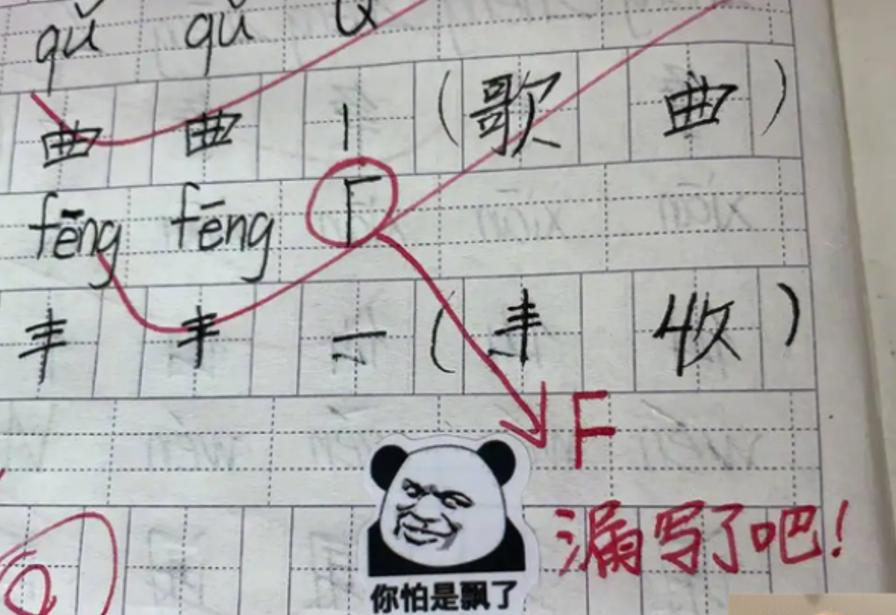 qǔ qǔ Q
曲 曲 丨 (歌 曲)
fēng fēng Γ
丰 丰 一 (丰 收)
F
漏写了吧!
你怕是飘了